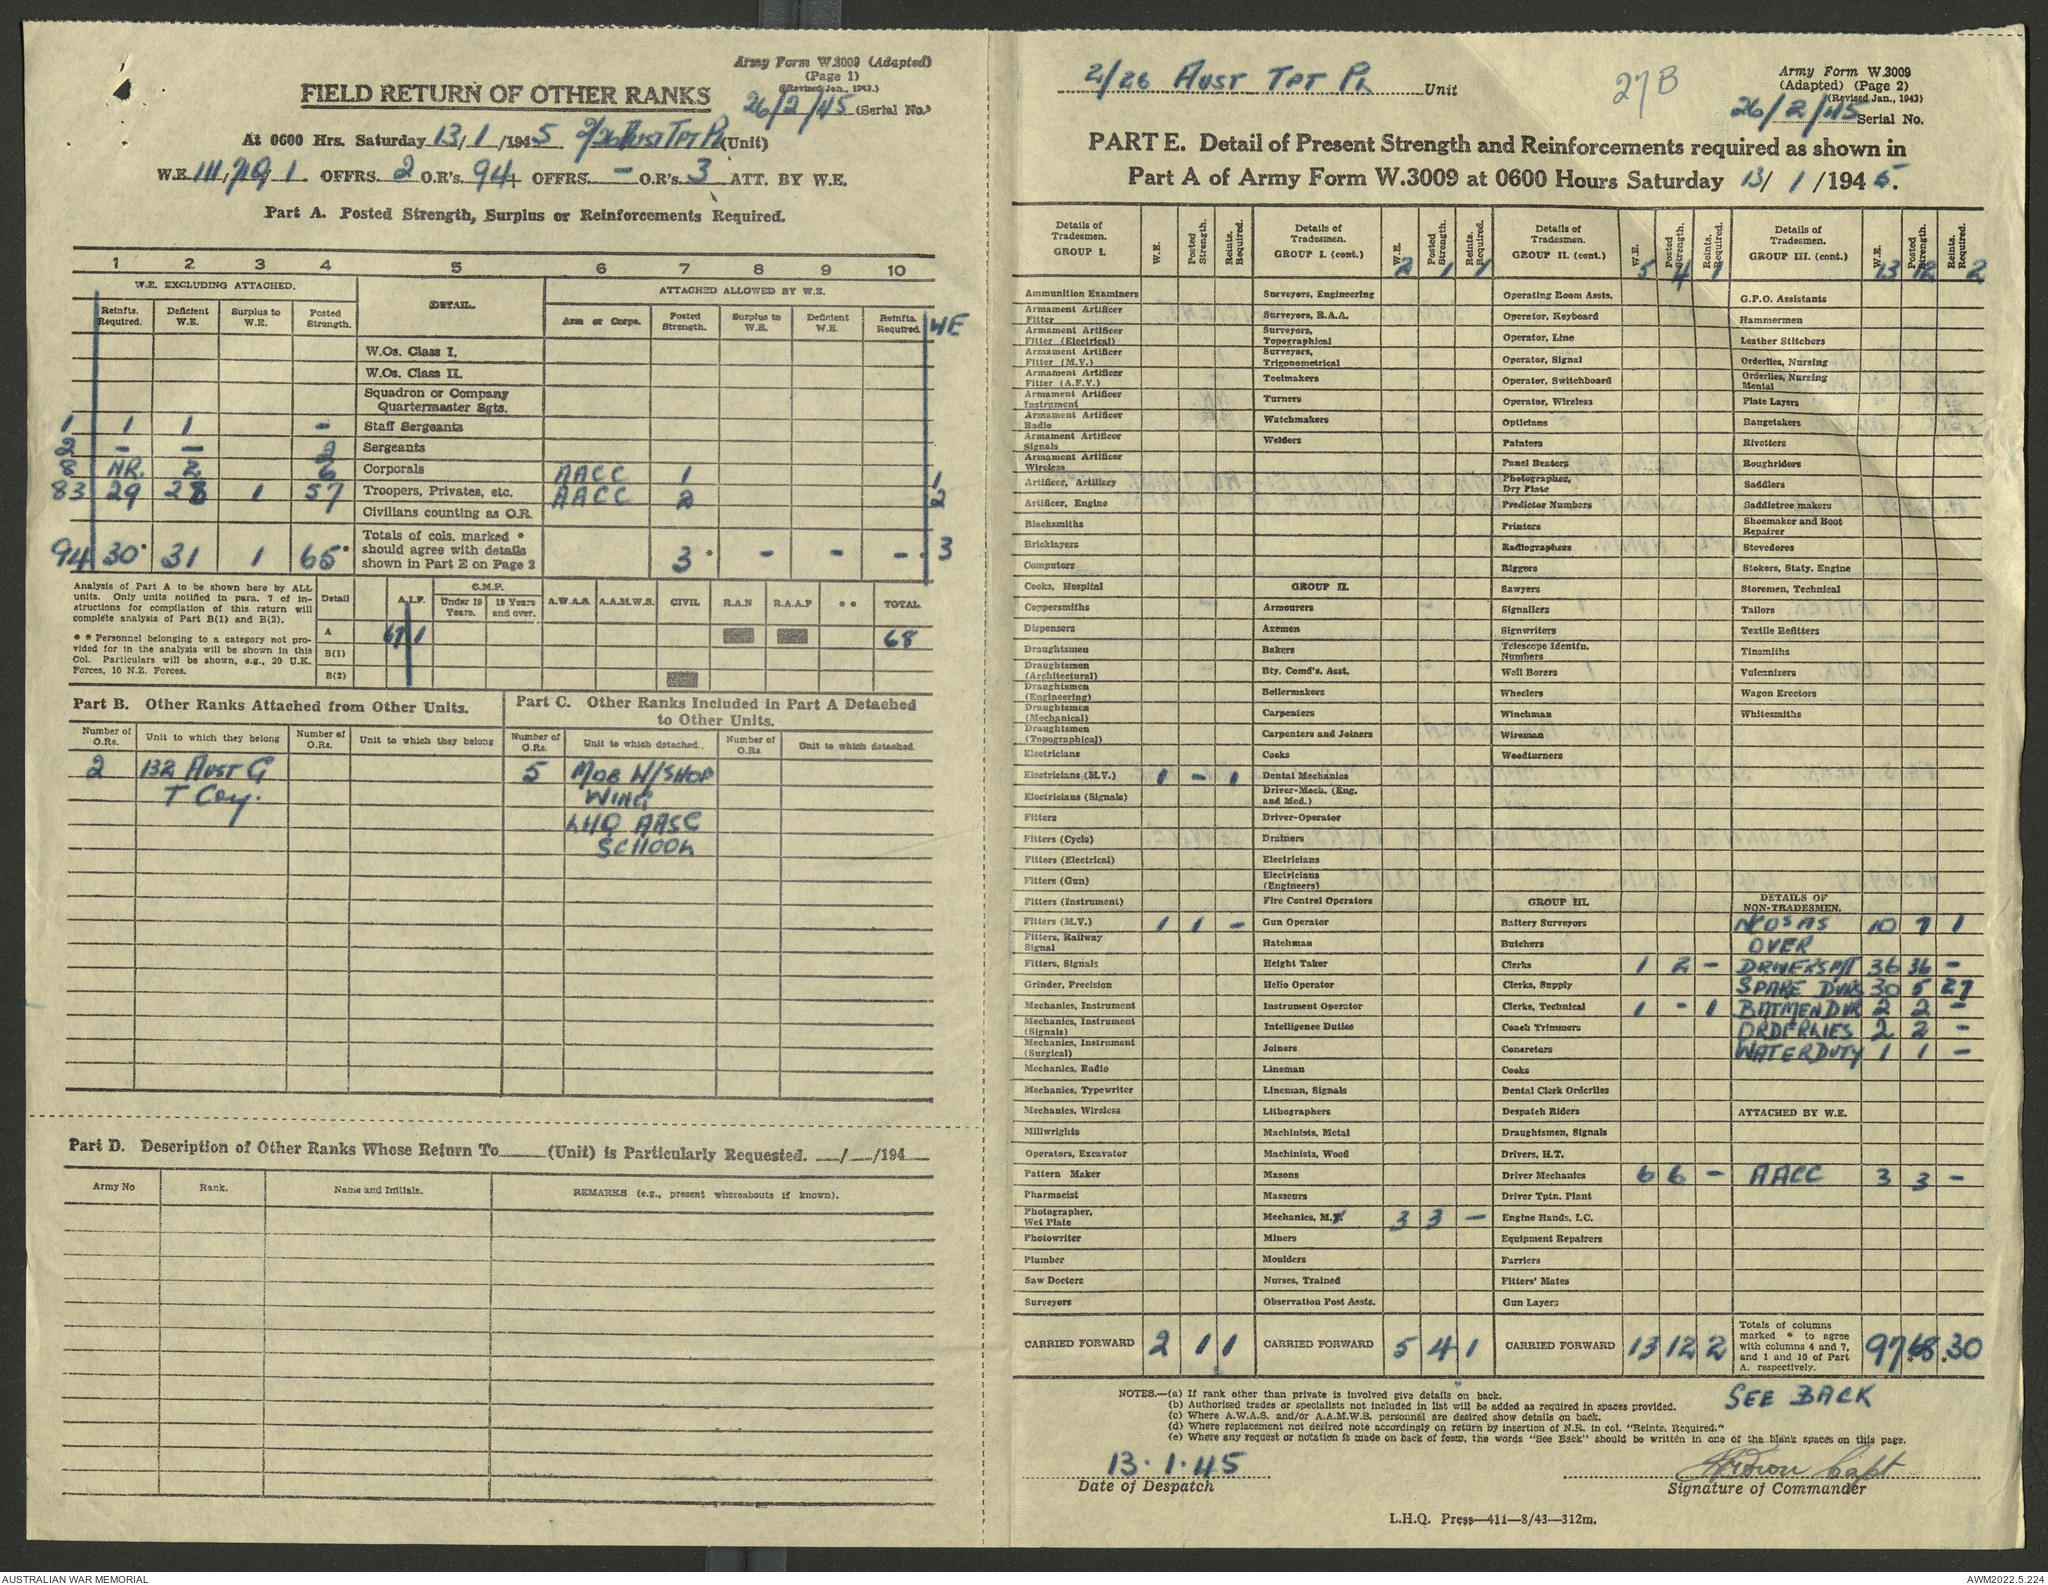 Army Form W.3009 (Adapted)
(Page 1)
(Revised Jan., 1943.)
FIELD RETURN OF OTHER RANKS
26/2/45 (Serial No.)
At 0600 Hrs. Saturday 13/1/1945 2/26 Aust Tpt Pl (Unit)
W.E. III/ 1 OFFRS. 2 O.R's. 94 + OFFRS. – O.R's. 3 ATT. BY W.E.
Part A. Posted Strength, Surplus or Reinforcements Required.
1 2 3 4 5 6 7 8 9 10
W.E. EXCLUDING ATTACHED. DETAIL. ATTACHED ALLOWED BY W.E.
Reinfts. Required. Deficient W.E. Surplus to W.E. Posted Strength. Arm or Corps. Posted Strength. Surplus to W.E. Deficient W.E. Reinfts. Required. WE
W.Os. Class I.
W.Os. Class II.
Squadron or Company Quartermaster Sgts.
1 1 1 – Staff Sergeants
2 – – 2 Sergeants
8 NR. 2 6 Corporals AACC 1 1
83 29 28 1 57 Troopers, Privates, etc. AACC 2 2
Civilians counting as O.R.
94 30* 31 1 65* Totals of cols. marked * should agree with details shown in Part E on Page 2 3* – – – * 3
Analysis of Part A to be shown here by ALL units. Only units notified in para. 7 of instructions for compilation of this return will complete analysis of Part B(1) and B(2).
* * Personnel belonging to a category not provided for in the analysis will be shown in this Col. Particulars will be shown, e.g., 20 U.K. Forces, 10 N.Z. Forces.
Detail A.I.F. C.M.P. Under 19 Years. 19 Years and over. A.W.A.S. A.A.M.W.S. CIVIL R.A.N R.A.A.F * * TOTAL
A 67 1 68
B(1)
B(2)
Part B. Other Ranks Attached from Other Units.
Part C. Other Ranks Included in Part A Detached to Other Units.
Number of O.Rs. Unit to which they belong Number of O.Rs. Unit to which they belong Number of O.Rs. Unit to which detached. Number of O.Rs Unit to which detached.
2 132 Aust G 5 MOB W/SHOP
T Coy. WING
LHQ AASC
SCHOOL
Part D. Description of Other Ranks Whose Return To (Unit) is Particularly Requested. / /194
Army No Rank. Name and Initials. REMARKS (e.g., present whereabouts if known).
2/26 Aust Tpt Pl Unit
27B
Army Form W.3009
(Adapted) (Page 2)
(Revised Jan., 1943)
26/2/45 Serial No.
PART E. Detail of Present Strength and Reinforcements required as shown in
Part A of Army Form W.3009 at 0600 Hours Saturday 13/ 1 /1945.
Details of Tradesmen. GROUP I. W.E. Posted Strength. Reints. Required.
Ammunition Examiners
Armament Artificer Fitter
Armament Artificer Fitter (Electrical)
Armament Artificer Fitter (M.V.)
Armament Artificer Fitter (A.F.V.)
Armament Artificer Instrument
Armament Artificer Radio
Armament Artificer Signals
Armament Artificer Wireless
Artificer, Artillery
Artificer, Engine
Blacksmiths
Bricklayers
Computers
Cooks, Hospital
Coppersmiths
Dispensers
Draughtsmen
Draughtsmen (Architectural)
Draughtsmen (Engineering)
Draughtsmen (Mechanical)
Draughtsmen (Topographical)
Electricians
Electricians (M.V.) 1 – 1
Electricians (Signals)
Fitters
Fitters (Cycle)
Fitters (Electrical)
Fitters (Gun)
Fitters (Instrument)
Fitters (M.V.) 1 1 –
Fitters, Railway Signal
Fitters, Signals
Grinder, Precision
Mechanics, Instrument
Mechanics, Instrument (Signals)
Mechanics, Instrument (Surgical)
Mechanics, Radio
Mechanics, Typewriter
Mechanics, Wireless
Millwrights
Operators, Excavator
Pattern Maker
Pharmacist
Photographer, Wet Plate
Photowriter
Plumber
Saw Doctors
Surveyors
CARRIED FORWARD 2 1 1
Details of Tradesmen. GROUP I. (cont.) W.E. 2 Posted Strength. 1 Reints. Required. 1
Surveyors, Engineering
Surveyors, R.A.A.
Surveyors, Topographical
Surveyors, Trigonometrical
Toolmakers
Turners
Watchmakers
Welders
GROUP II.
Armourers
Axemen
Bakers
Bty. Comd's. Asst.
Boilermakers
Carpenters
Carpenters and Joiners
Cooks
Dental Mechanics
Driver-Mech. (Eng. and Med.)
Driver-Operator
Drainers
Electricians
Electricians (Engineers)
Fire Control Operators
Gun Operator
Hatchman
Height Taker
Helio Operator
Instrument Operator
Intelligence Duties
Joiners
Lineman
Lineman, Signals
Lithographers
Machinists, Metal
Machinists, Wood
Masons
Masseurs
Mechanics, M.V. 3 3 –
Miners
Moulders
Nurses, Trained
Observation Post Assts.
CARRIED FORWARD 5 4 1
Details of Tradesmen. GROUP II. (cont.) W.E. 5 Posted Strength. 4 Reints. Required. 1
Operating Room Assts.
Operator, Keyboard
Operator, Line
Operator, Signal
Operator, Switchboard
Operator, Wireless
Opticians
Painters
Panel Beaters
Photographer, Dry Plate
Predictor Numbers
Printers
Radiographers
Riggers
Sawyers
Signallers
Signwriters
Telescope Identfn. Numbers
Well Borers
Wheelers
Winchman
Wireman
Woodturners
GROUP III.
Battery Surveyors
Butchers
Clerks 1 2 –
Clerks, Supply
Clerks, Technical 1 – 1
Coach Trimmers
Concretors
Cooks
Dental Clerk Orderlies
Despatch Riders
Draughtsmen, Signals
Drivers, H.T.
Driver Mechanics 6 6 –
Driver Tptn. Plant
Engine Hands, I.C.
Equipment Repairers
Farriers
Fitters' Mates
Gun Layers
CARRIED FORWARD 13 12 2
Details of Tradesmen. GROUP III. (cont.) W.E. 13 Posted Strength. 12 Reints. Required. 2
G.P.O. Assistants
Hammermen
Leather Stitchers
Orderlies, Nursing
Orderlies, Nursing Mental
Plate Layers
Rangetakers
Rivetters
Roughriders
Saddlers
Saddletree makers
Shoemaker and Boot Repairer
Stevedores
Stokers, Staty. Engine
Storemen, Technical
Tailors
Textile Refitters
Tinsmiths
Vulcanizers
Wagon Erectors
Whitesmiths
DETAILS OF NON-TRADESMEN.
NCOs AS 10 7 1
OVER
DRIVERS M/T 36 36 –
SPARE DVRS 30 5 27
BATMEN DVR 2 2 –
ORDERLIES 2 2 –
WATER DUTY 1 1 –
ATTACHED BY W.E.
AACC 3 3 –
Totals of columns marked * to agree with columns 4 and 7, and 1 and 10 of Part A. respectively. 97 68* *30
NOTES.—(a) If rank other than private is involved give details on back.
(b) Authorised trades or specialists not included in list will be added as required in spaces provided.
(c) Where A.W.A.S. and/or A.A.M.W.S. personnel are desired show details on back.
(d) Where replacement not desired note accordingly on return by insertion of N.R. in col. "Reints. Required."
(e) Where any request or notation is made on back of form, the words "See Back" should be written in one of the blank spaces on this page.
SEE BACK
13.1.45
Date of Despatch
Capt
Signature of Commander
L.H.Q. Press—411—8/43—312m.
AUSTRALIAN WAR MEMORIAL
AWM2022.5.224